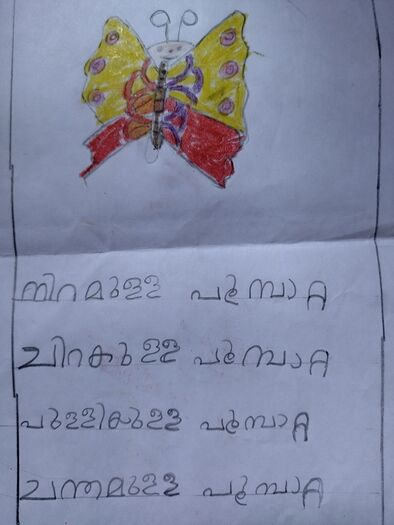 നിറമുള്ള പൂമ്പാറ്റ
ചിറകുള്ള പൂമ്പാറ്റ
പുള്ളികുള്ള പൂമ്പാറ്റ
ചന്തമുള്ള പൂമ്പാറ്റ